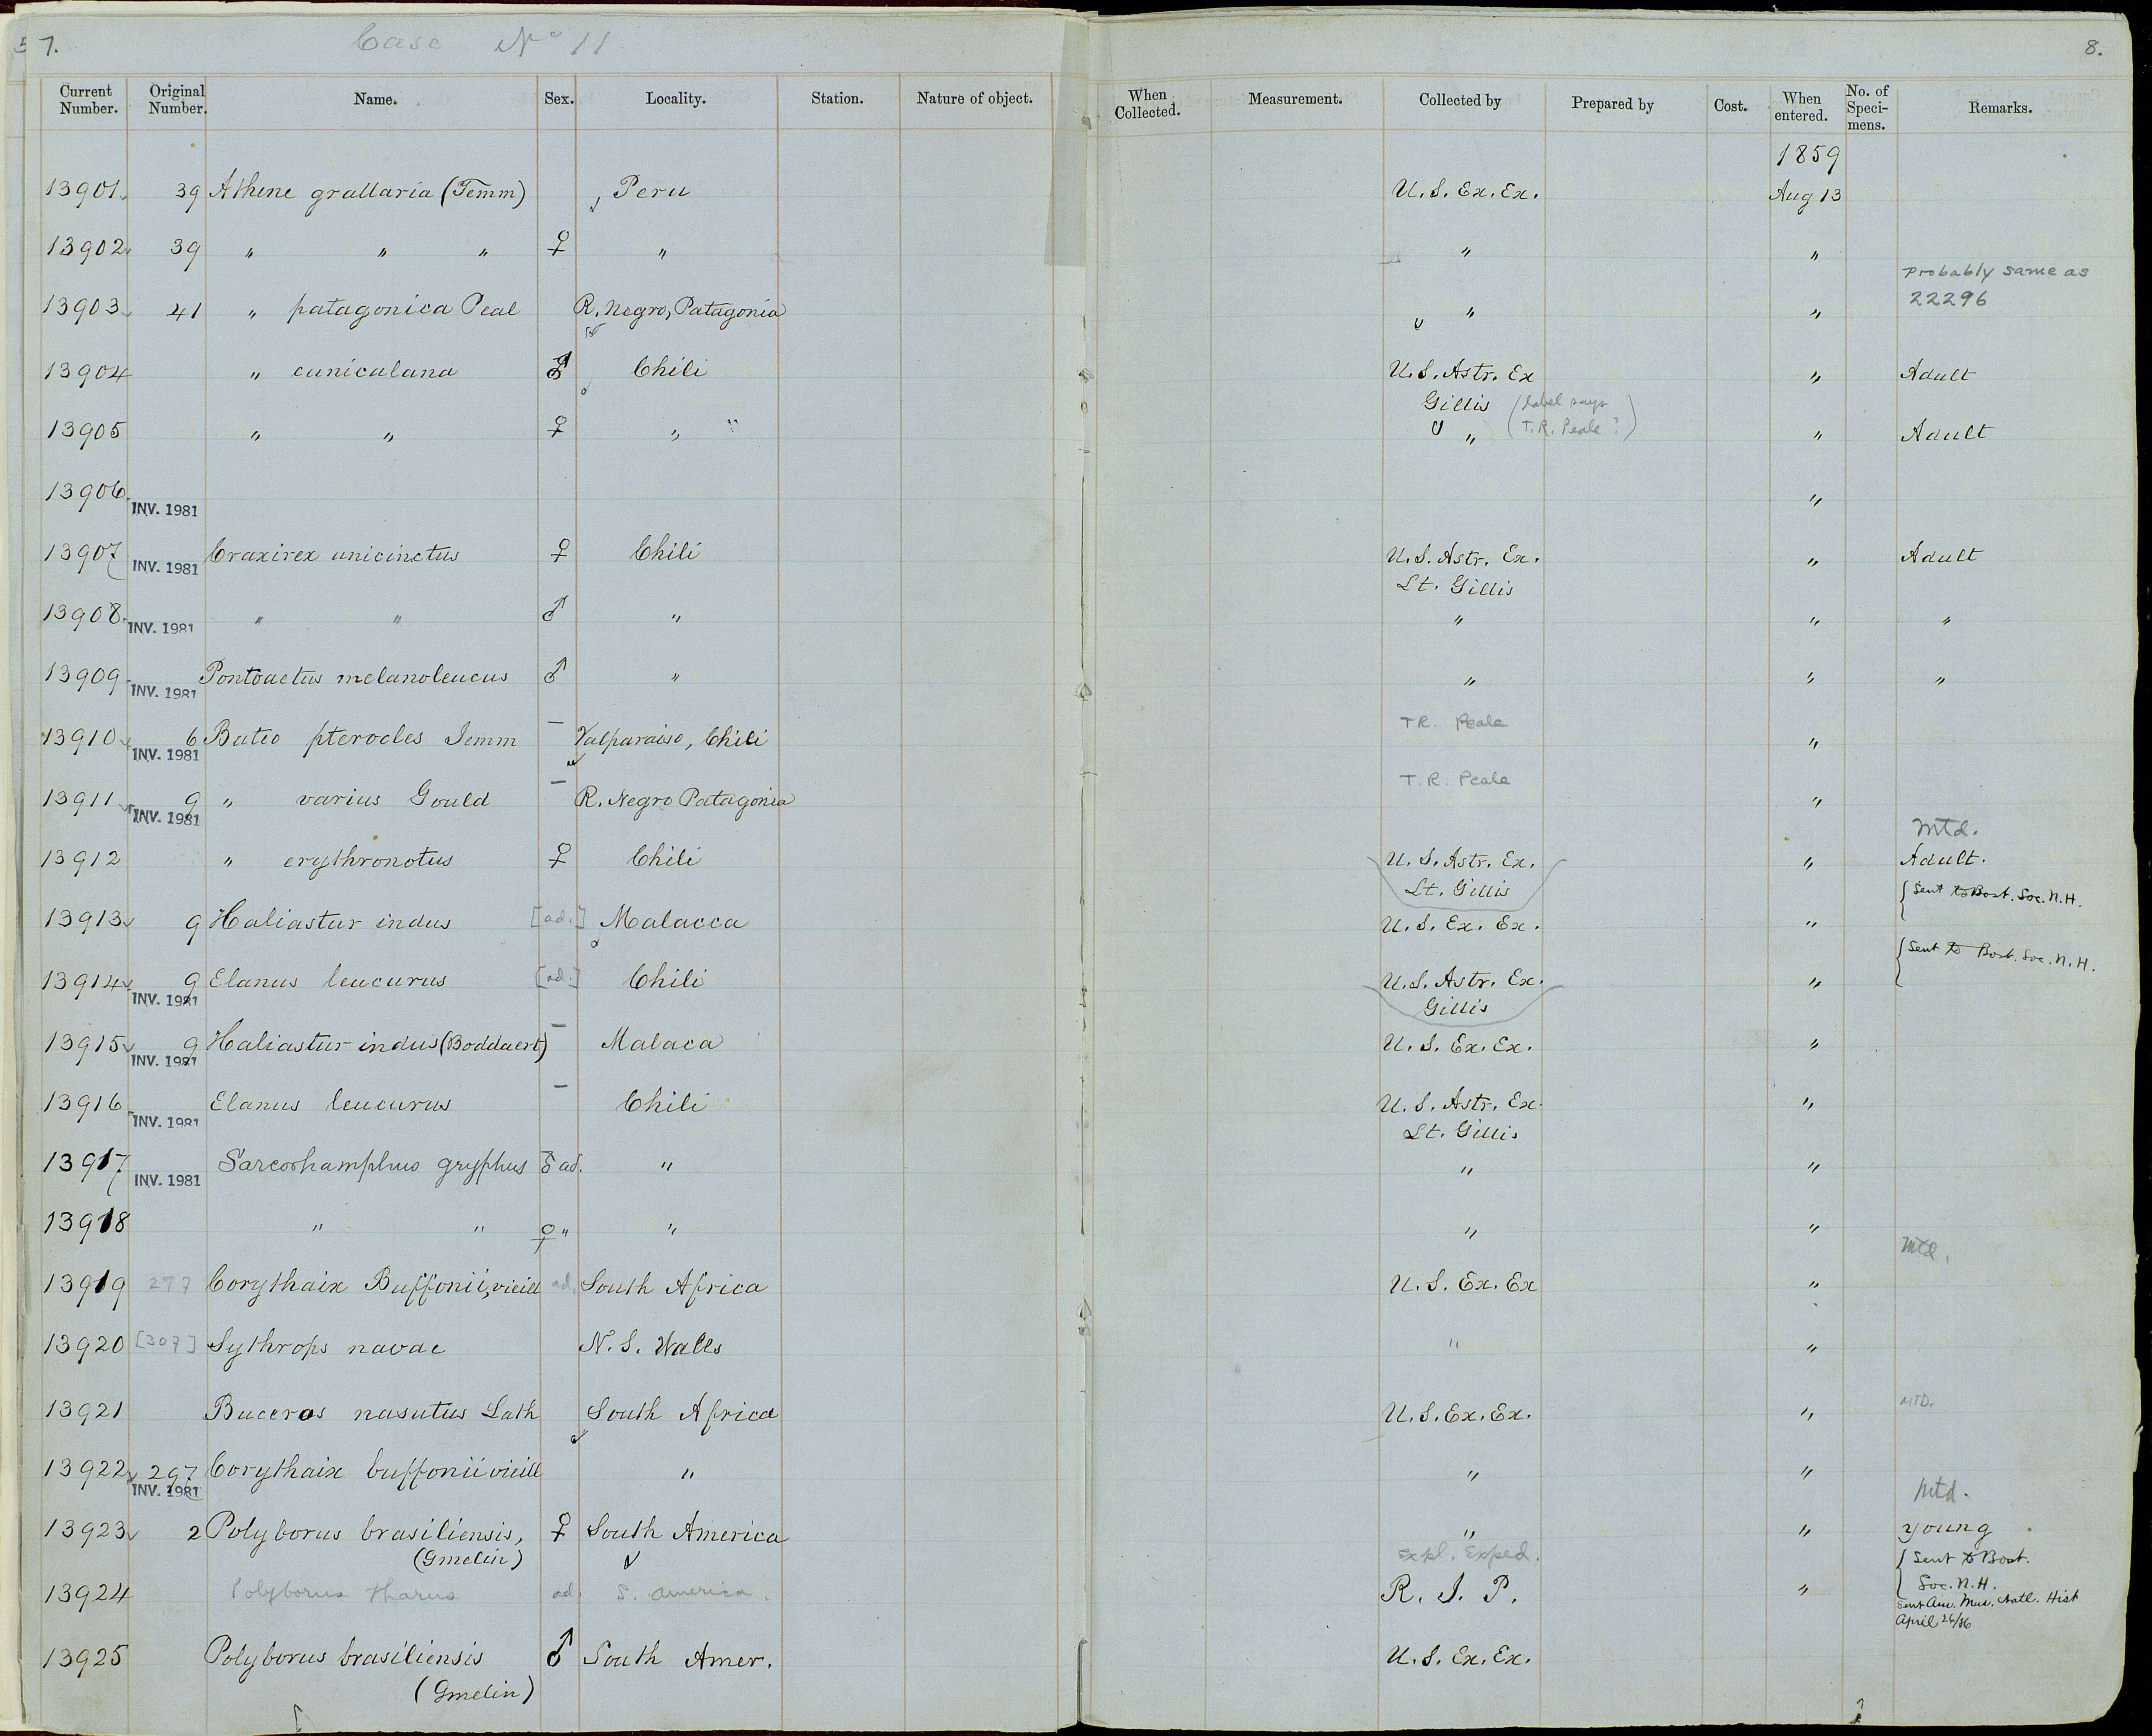 7. Case No 11 8.
Current Number. Original Number. Name. Sex. Locality. Station. Nature of object. When Collected. Measurement. Collected by Prepared by Cost. When entered. No. of Speci-mens. Remarks.
1859
13901 39 Athene grallaria (Temm) Peru U.S. Ex. Ex. Aug 13
13902 39 " " " ♀ " " "
Probably same as
13903 41 " patagonica Peal R. Negro, Patagonia " " 22296
13904 " cuniculana ♂ Chili U.S. Astr. Ex " Adult
Gillis (label says
13905 " " ♀ " " " T.R. Peale?) " Adult
13906 INV. 1981 "
13907 INV. 1981 Craxirex unicinctus ♀ Chili U.S. Astr. Ex. " Adult
Lt. Gillis
13908 INV. 1981 " " ♂ " " " "
13909 INV. 1981 Pontoaetus melanoleucus ♂ " " " "
13910 6 INV. 1981 Buteo pterocles Temm — Valparaiso, Chili TR. Peale "
13911 9 INV. 1981 " varius Gould — R. Negro Patagonia T.R. Peale "
Mtd.
13912 " erythronotus ♀ Chili U.S. Astr. Ex. " Adult.
Lt. Gillis {Sent to Bost. Soc. N.H.
13913 9 Haliastur indus [ad.] Malacca U.S. Ex. Ex. "
{Sent to Bost. Soc. N.H.
13914 9 INV. 1981 Elanus leucurus [ad.] Chili U.S. Astr. Ex. "
Gillis
13915 9 INV. 1981 Haliastur indus (Boddaert) — Malaca U.S. Ex. Ex. "
13916 INV. 1981 Elanus leucurus — Chili U.S. Astr. Ex. "
Lt. Gillis
13917 INV. 1981 Sarcorhamphus gryphus ♂ ad. " " "
13918 " " ♀ " " " "
Mtd.
13919 297 Corythaix Buffonii, vieill ad. South Africa U.S. Ex. Ex "
13920 [307] Sythrops novae N.S. Wales " "
13921 Buceros nasutus Lath South Africa U.S. Ex. Ex. " MTD.
13922 297 INV. 1981 Corythaix buffonii vieill " " "
Mtd.
13923 2 Polyborus brasiliensis, ♀ South America " " young
(Gmelin) Expl. Exped. {Sent to Bost.
Soc. N.H.
13924 Polyborus tharus ad. S. America. R. I. P. "
Sent Am. Mus. Natl. Hist
April 26/86
13925 Polyborus brasiliensis ♂ South Amer. U.S. Ex. Ex.
(Gmelin)